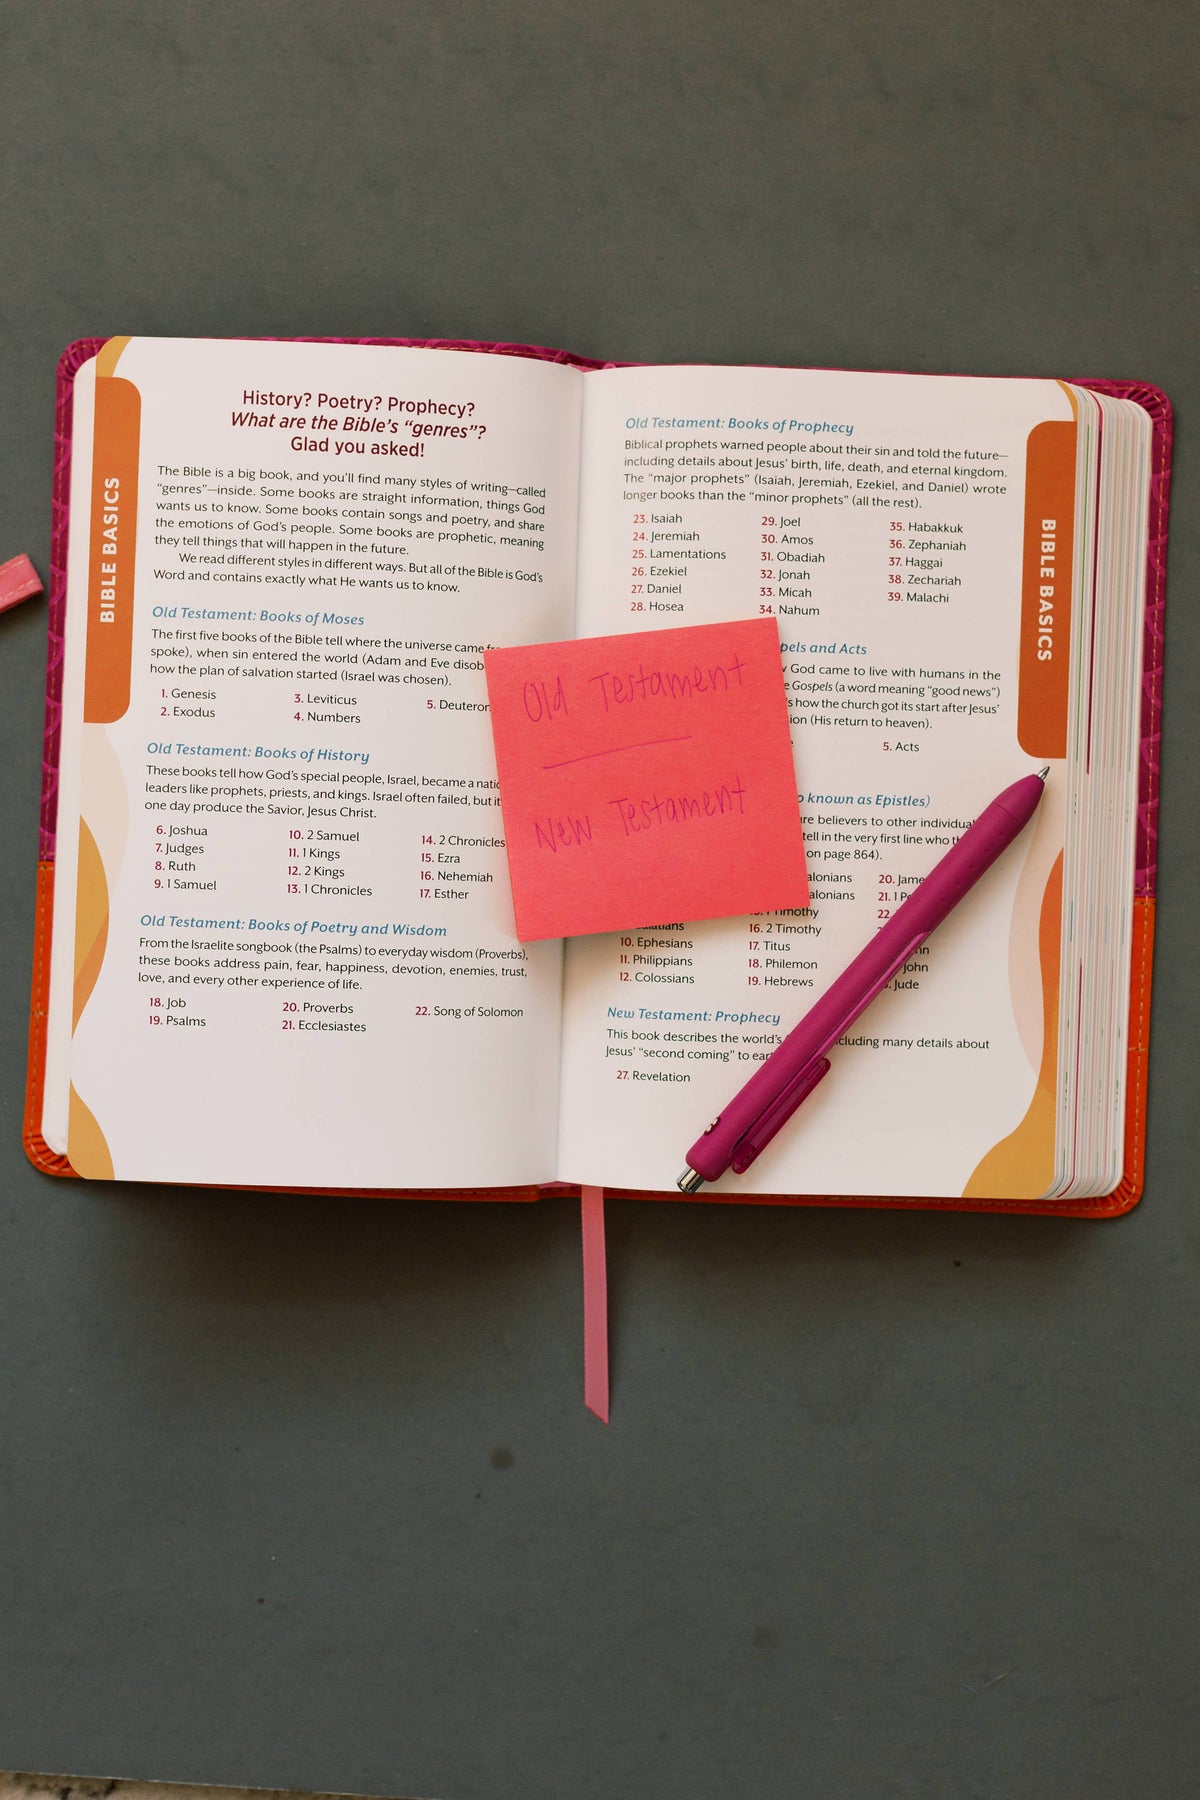 BIBLE BASICS
History? Poetry? Prophecy?
What are the Bible's “genres”?
Glad you asked!
The Bible is a big book, and you'll find many styles of writing—called
“genres”—inside. Some books are straight information, things God
wants us to know. Some books contain songs and poetry, and share
the emotions of God's people. Some books are prophetic, meaning
they tell things that will happen in the future.
We read different styles in different ways. But all of the Bible is God's
Word and contains exactly what He wants us to know.
Old Testament: Books of Moses
The first five books of the Bible tell where the universe came
spoke), when sin entered the world (Adam and Eve
how the plan of salvation started (Israel was chosen).
1. Genesis
2. Exodus
3. Leviticus
4. Numbers
5.
Old Testament: Books of History
These books tell how God's special people, Israel, became a
leaders like prophets, priests, and kings. Israel often failed, but it
one day produce the Savior, Jesus Christ.
6. Joshua
7. Judges
8. Ruth
9. 1 Samuel
10. 2 Samuel
11. 1 Kings
12. 2 Kings
13. 1 Chronicles
14. 2 Chronicles
15. Ezra
16. Nehemiah
17. Esther
Old Testament: Books of Poetry and Wisdom
From the Israelite songbook (the Psalms) to everyday wisdom (Proverbs),
these books address pain, fear, happiness, devotion, enemies, trust,
love, and every other experience of life.
18. Job
19. Psalms
20. Proverbs
21. Ecclesiastes
22. Song of Solomon
Old Testament
New Testament
Old Testament: Books of Prophecy
Biblical prophets warned people about their sin and told the future—
including details about Jesus' birth, life, death, and eternal kingdom.
The “major prophets” (Isaiah, Jeremiah, Ezekiel, and Daniel) wrote
longer books than the “minor prophets” (all the rest).
23. Isaiah
24. Jeremiah
25. Lamentations
26. Ezekiel
27. Daniel
28. Hosea
29. Joel
30. Amos
31. Obadiah
32. Jonah
33. Micah
34. Nahum
35. Habakkuk
36. Zephaniah
37. Haggai
38. Zechariah
39. Malachi
and Acts
God came to live with humans in the
Gospels (a word meaning “good news”)
how the church got its start after Jesus'
(His return to heaven).
5. Acts
known as Epistles)
believers to other
tell in the very first line who
on page 864).
10. Ephesians
11. Philippians
12. Colossians
16. 2 Timothy
17. Titus
18. Philemon
19. Hebrews
20.
21. 1
22.
John
Jude
New Testament: Prophecy
This book describes the world's including many details about
Jesus' “second coming” to
27. Revelation
BIBLE BASICS